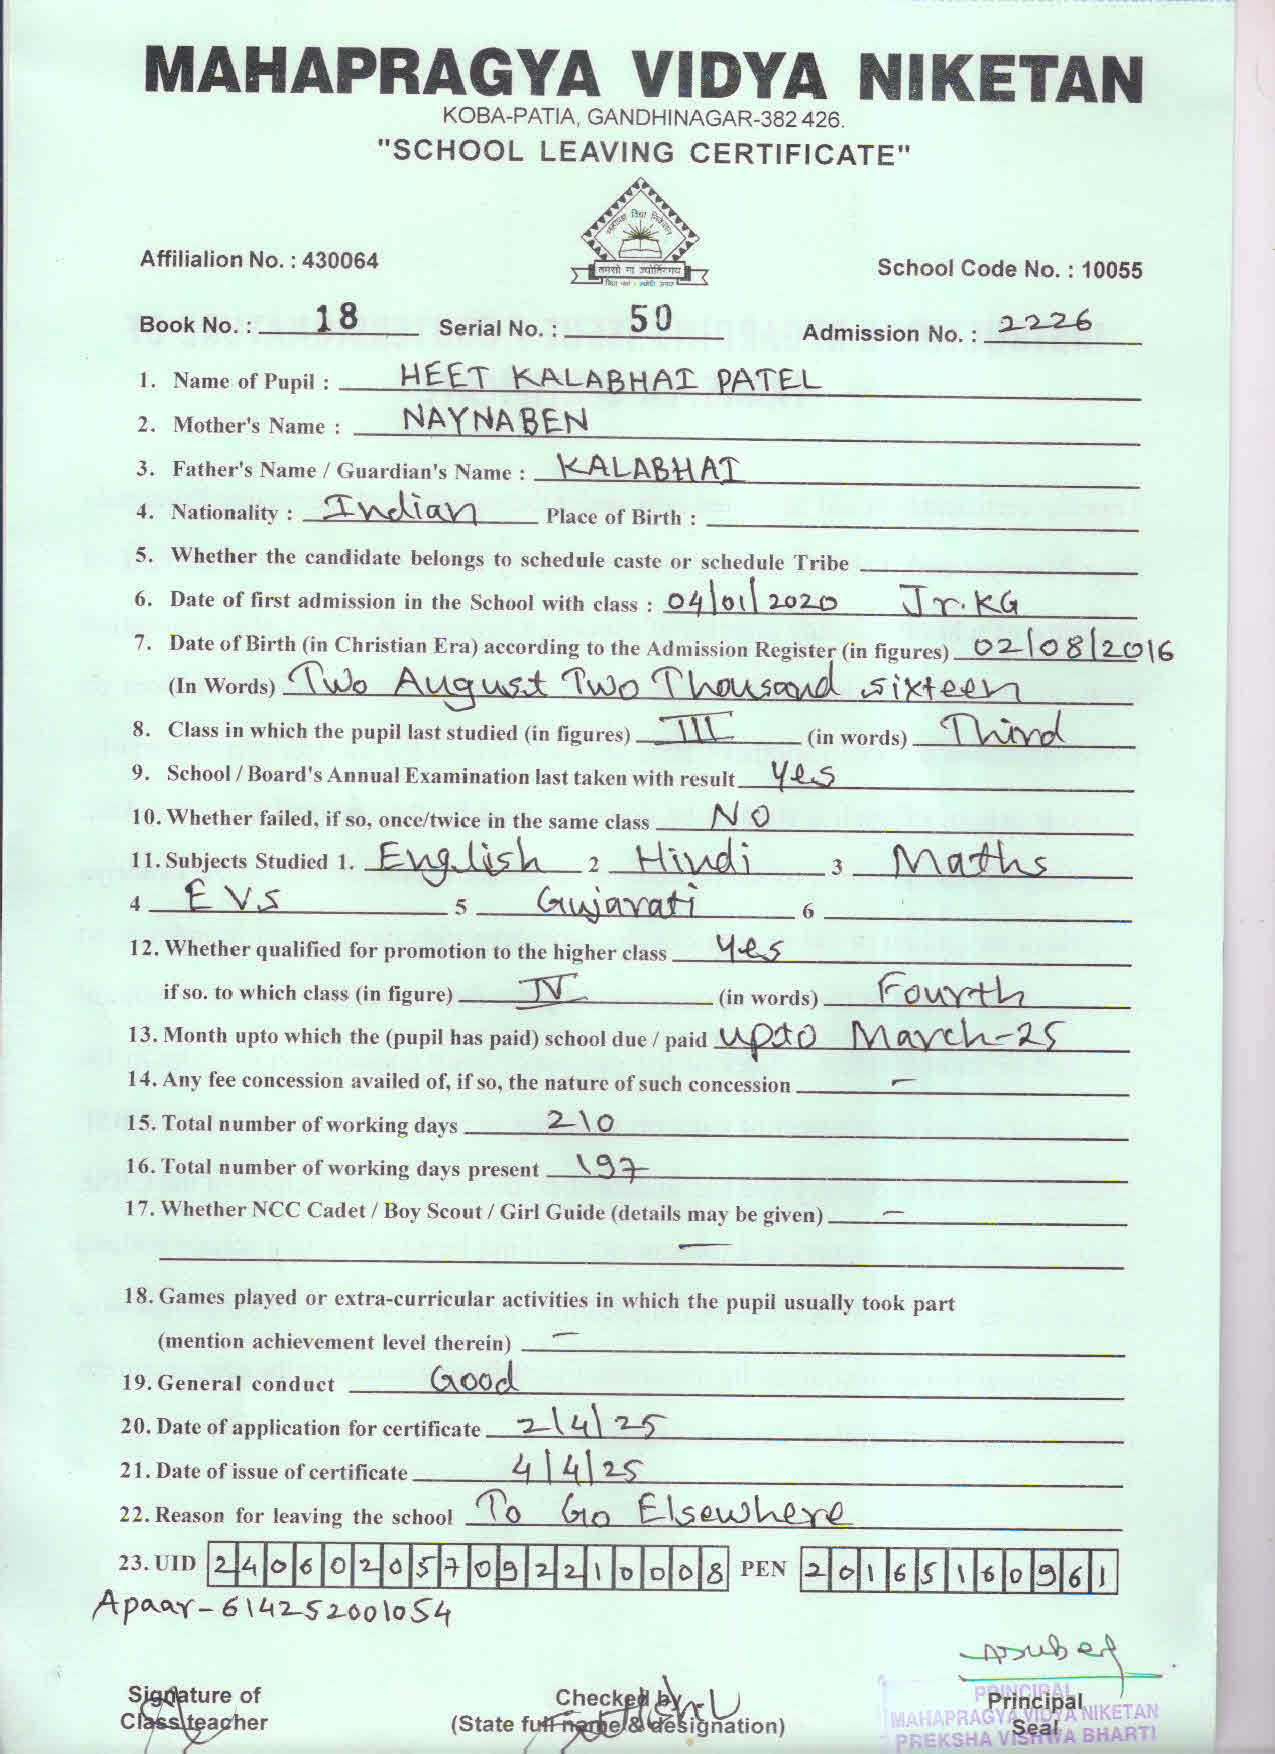 MAHAPRAGYA VIDYA NIKETAN
KOBA-PATIA, GANDHINAGAR-382 426.
"SCHOOL LEAVING CERTIFICATE"
महाप्रज्ञा विद्या निकेतन
तमसो मा ज्योतिर्गमय
Affilialion No. : 430064
School Code No. : 10055
Book No. : 18 Serial No. : 50 Admission No. : 2226
1. Name of Pupil : HEET KALABHAI PATEL
2. Mother's Name : NAYNABEN
3. Father's Name / Guardian's Name : KALABHAI
4. Nationality : Indian Place of Birth :
5. Whether the candidate belongs to schedule caste or schedule Tribe
6. Date of first admission in the School with class : 04/01/2020 Jr.KG
7. Date of Birth (in Christian Era) according to the Admission Register (in figures) 02/08/2016
(In Words) Two August Two Thousand sixteen
8. Class in which the pupil last studied (in figures) III (in words) Third
9. School / Board's Annual Examination last taken with result yes
10. Whether failed, if so, once/twice in the same class NO
11. Subjects Studied 1. English 2 Hindi 3 Maths
4 EVS 5 Gujarati 6
12. Whether qualified for promotion to the higher class yes
if so. to which class (in figure) IV (in words) Fourth
13. Month upto which the (pupil has paid) school due / paid upto March-25
14. Any fee concession availed of, if so, the nature of such concession —
15. Total number of working days 210
16. Total number of working days present 197
17. Whether NCC Cadet / Boy Scout / Girl Guide (details may be given) —
—
18. Games played or extra-curricular activities in which the pupil usually took part
(mention achievement level therein) —
19. General conduct Good
20. Date of application for certificate 2/4/25
21. Date of issue of certificate 4/4/25
22. Reason for leaving the school To Go Elsewhere
23. UID 240602057092210008 PEN 20165160961
Apaar-614252001054
Signature of
Class teacher
Checked by
(State full name & designation)
Principal
Seal
PRINCIPAL
MAHAPRAGYA VIDYA NIKETAN
PREKSHA VISHWA BHARTI